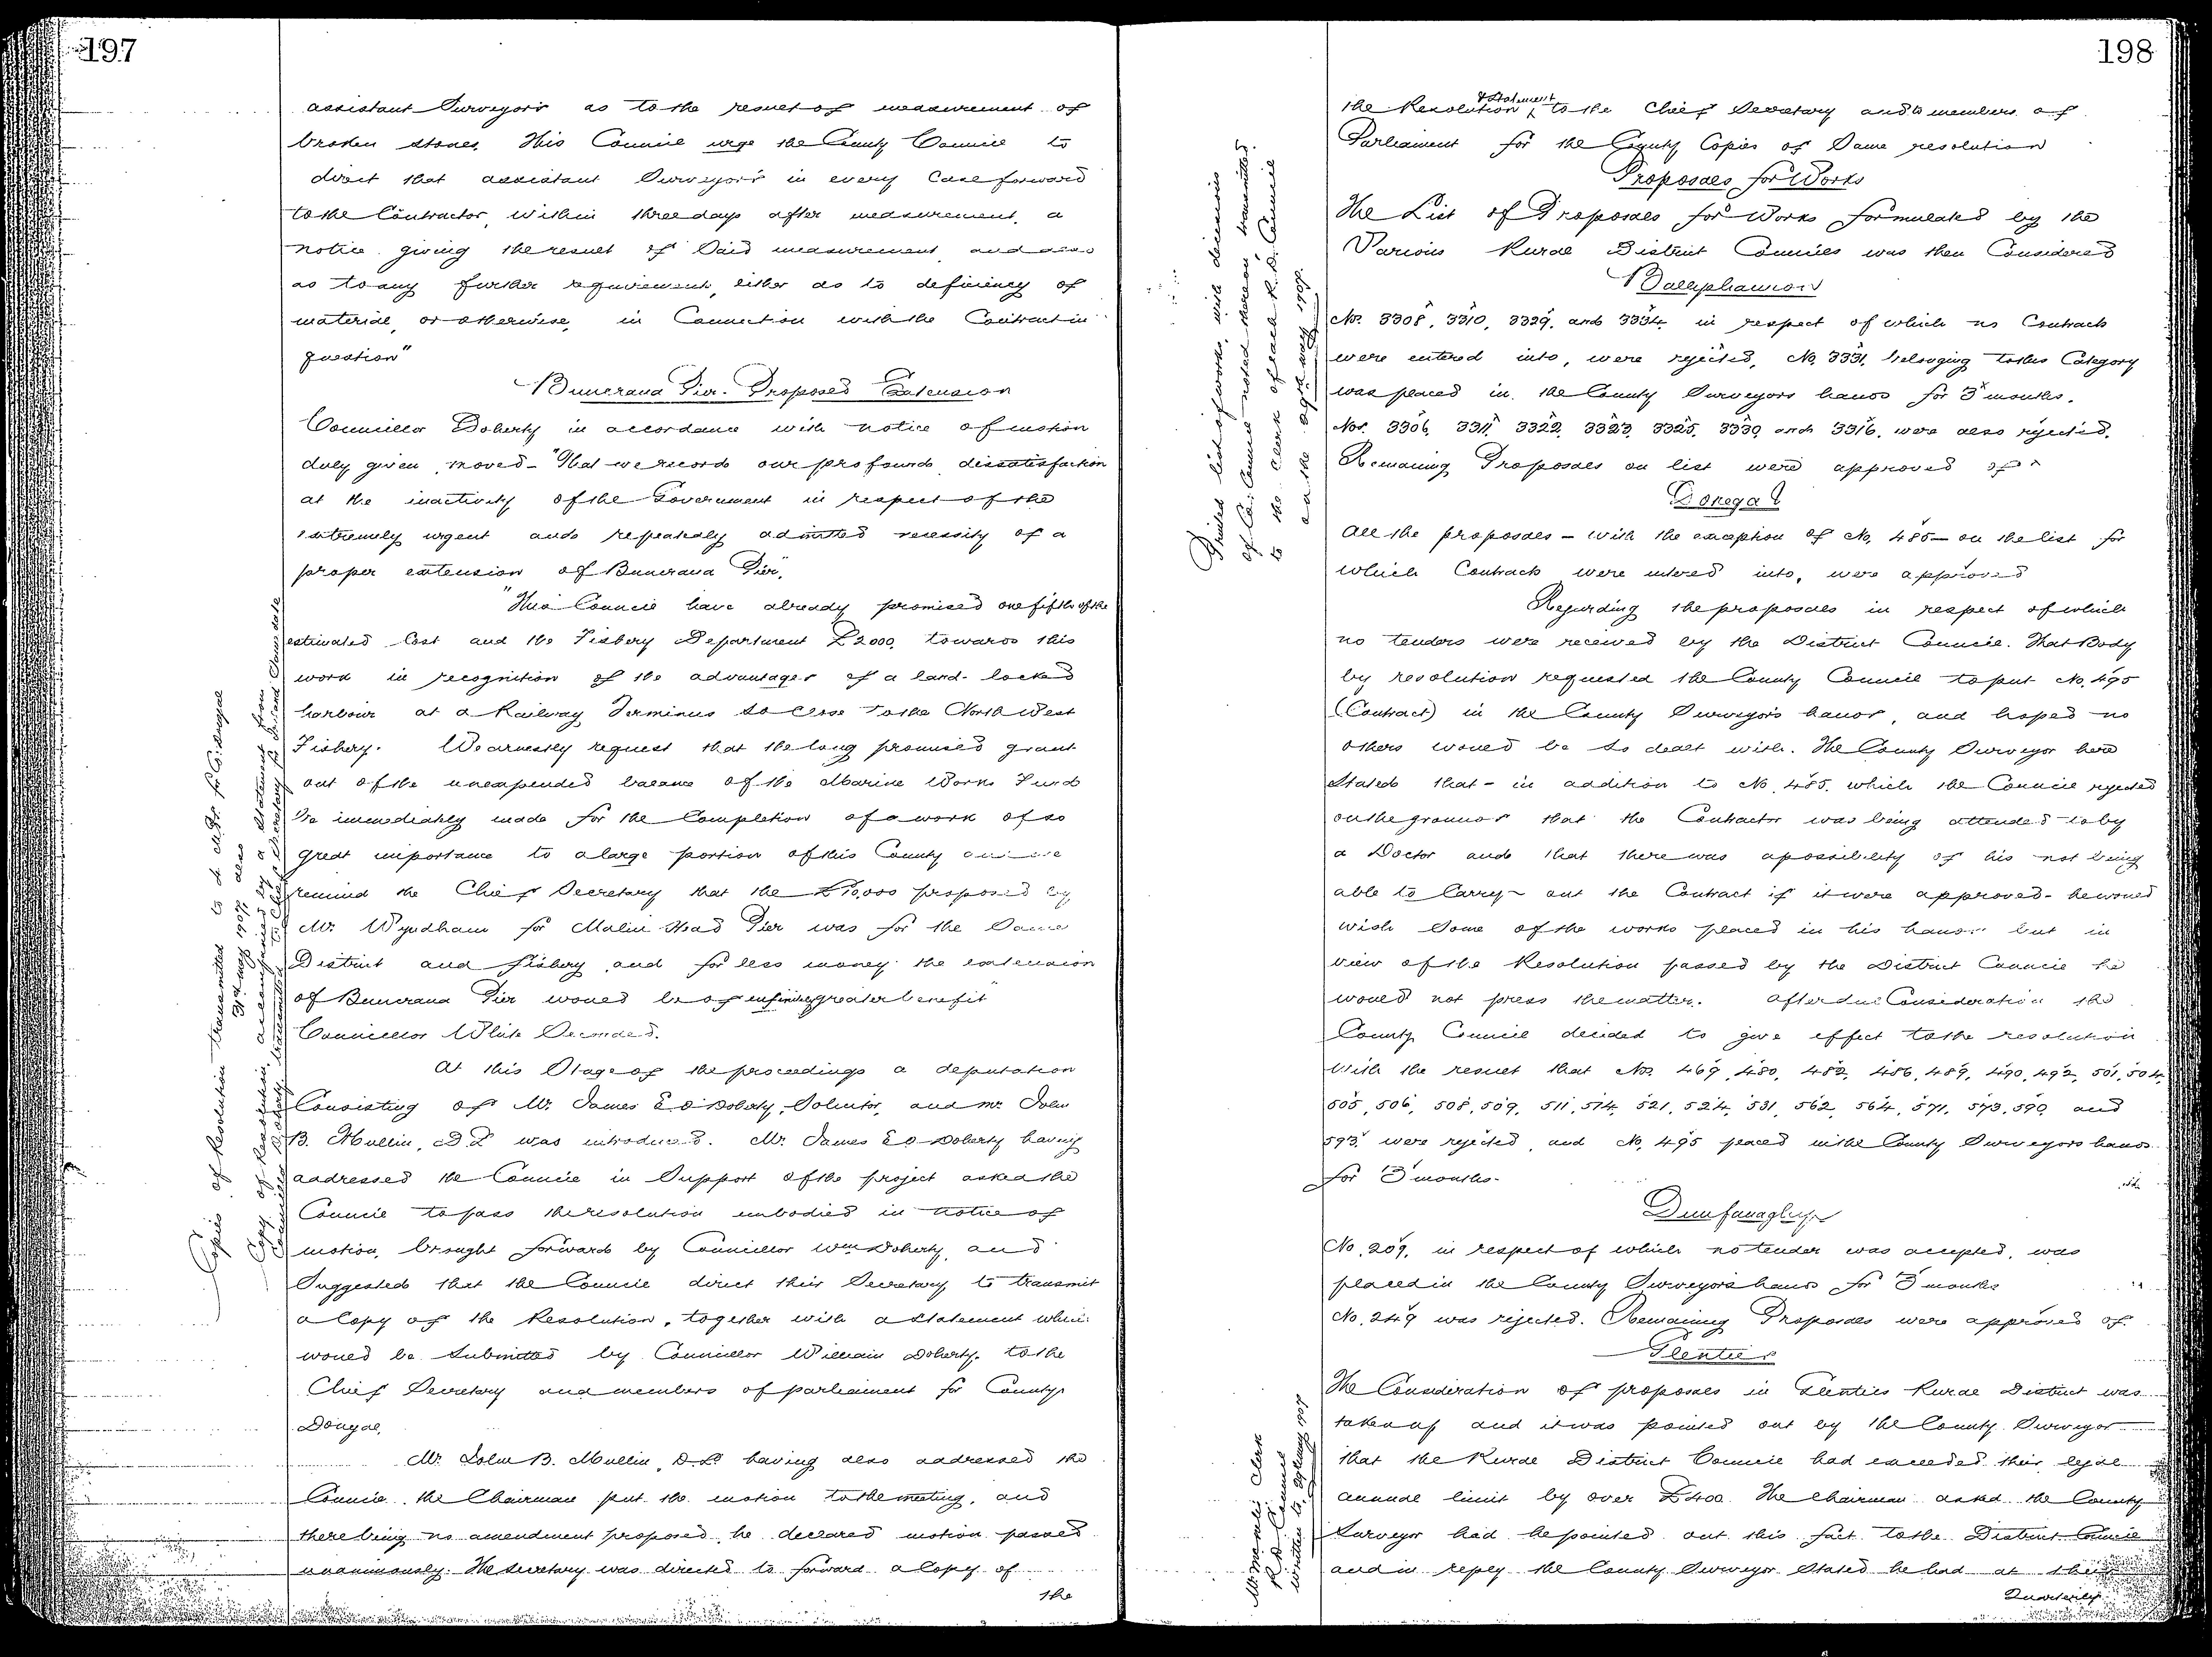 197
assistant Surveyors as to the result of measurement of
broken stones, This Council urge the County Council to
direct that assistant Surveyors in every Case forward
to the Contractor, within three days after measurement, a
notice giving the result of Said measurement, and also
as to any further requirement, either as to deficiency of
material, or otherwise, in Connection with the Contract in
question"
Buncrana Pier. Proposed Extension
Councillor Doherty in accordance with notice of motion
duly given, moved - "That we records our profound dissatisfaction
at the inactivity of the Government in respect of the
extremely urgent and repeatedly admitted necessity of a
proper extension of Buncrana Pier.
"This Council have already promised one fifth of the
estimated Cost and the Fishery Department £2000, towards this
work in recognition of the advantages of a land-locked
harbour at a Railway Terminus so Close to the North West
Fishery. We earnestly request that the long promised grant
out of the unexpended balance of the Marine Works Fund
be immediately made for the Completion of a work of so
great importance to a large portion of this County and we
remind the Chief Secretary that the £10,000 proposed by
Mr. Wyndham for Malin Head Pier was for the Same
District and fishery, and for less money the extension
of Buncrana Pier would be of infinitely greater benefit"
Councillor White Seconded.
At this Stage of the proceedings a deputation
Consisting of Mr. James E O'Doherty, Solicitor, and Mr. John
B. Mullin, D.L was introduced. Mr. James E O'Doherty having
addressed the Council in Support of the project asked the
Council to pass the resolution embodied in notice of
motion, brought forward by Councillor Wm Doherty, and
Suggested that the Council direct their Secretary to transmit
a Copy of the Resolution, together with a Statement which
would be Submitted by Councillor William Doherty to the
Chief Secretary and members of parliament for County
Donegal.
Mr. John B. Mullin, D.L. having also addressed the
Council, the Chairman put the motion to the meeting, and
there being no amendment proposed, he declared motion passed
unanimously. The Secretary was directed to forward a Copy of
the
Copies of Resolution transmitted to
31st May 1907
198
the Resolution & Statement to the Chief Secretary and to members of
Parliament for the County Copies of Same resolution
Proposals for Works
The List of Proposals for Works formulated by the
Various Rural District Councils was then Considered
Ballyshannon
No. 3308, 3310, 3329, and 3334 in respect of which no Contracts
were entered into, were rejected, No. 3331, belonging to this Category
was placed in the County Surveyors hands for 3 months.
Nos. 3306, 3311, 3322, 3323, 3325, 3330 and 3316, were also rejected.
Remaining Proposals on list were approved of
Donegal
All the proposals - with the exception of No. 485 - on the list for
which Contracts were entered into, were approved
Regarding the proposals in respect of which
no tenders were received by the District Council. That Body
by resolution requested the County Council to put No. 495
(Contract) in the County Surveyors hands, and hoped no
others would be so dealt with. The County Surveyor here
Stated that - in addition to No. 485, which the Council rejected
on the grounds that the Contractor was being attended to by
a Doctor and that there was a possibility of his not being
able to Carry out the Contract if it were approved - he would
wish Some of the works placed in his hands but in
view of the Resolution passed by the District Council he
would not press the matter. After due Consideration the
County Council decided to give effect to the resolution
With the result that Nos 469, 480, 482, 486, 489, 490, 492, 501, 504,
505, 506, 508, 509, 511, 514, 521, 524, 531, 562, 564, 571, 573, 590 and
593 were rejected, and No. 495 placed in the County Surveyors hands
for 3 months.
Dunfanaghy
No. 209, in respect of which no tender was accepted, was
placed in the County Surveyors hands for 3 months
No. 249 was rejected. Remaining Proposals were approved of.
Glenties
The Consideration of proposals in Glenties Rural District was
taken up and it was pointed out by the County Surveyor
that the Rural District Council had exceeded their legal
annual limit by over £400. The Chairman asked the County
Surveyor had he pointed out this fact to the District Council
and in reply the County Surveyor Stated he had at their
Quarterly
Printed list of works, with decisions
of Co. Council noted thereon, transmitted
to the Clerk of each R.D. Council
R.D. Council